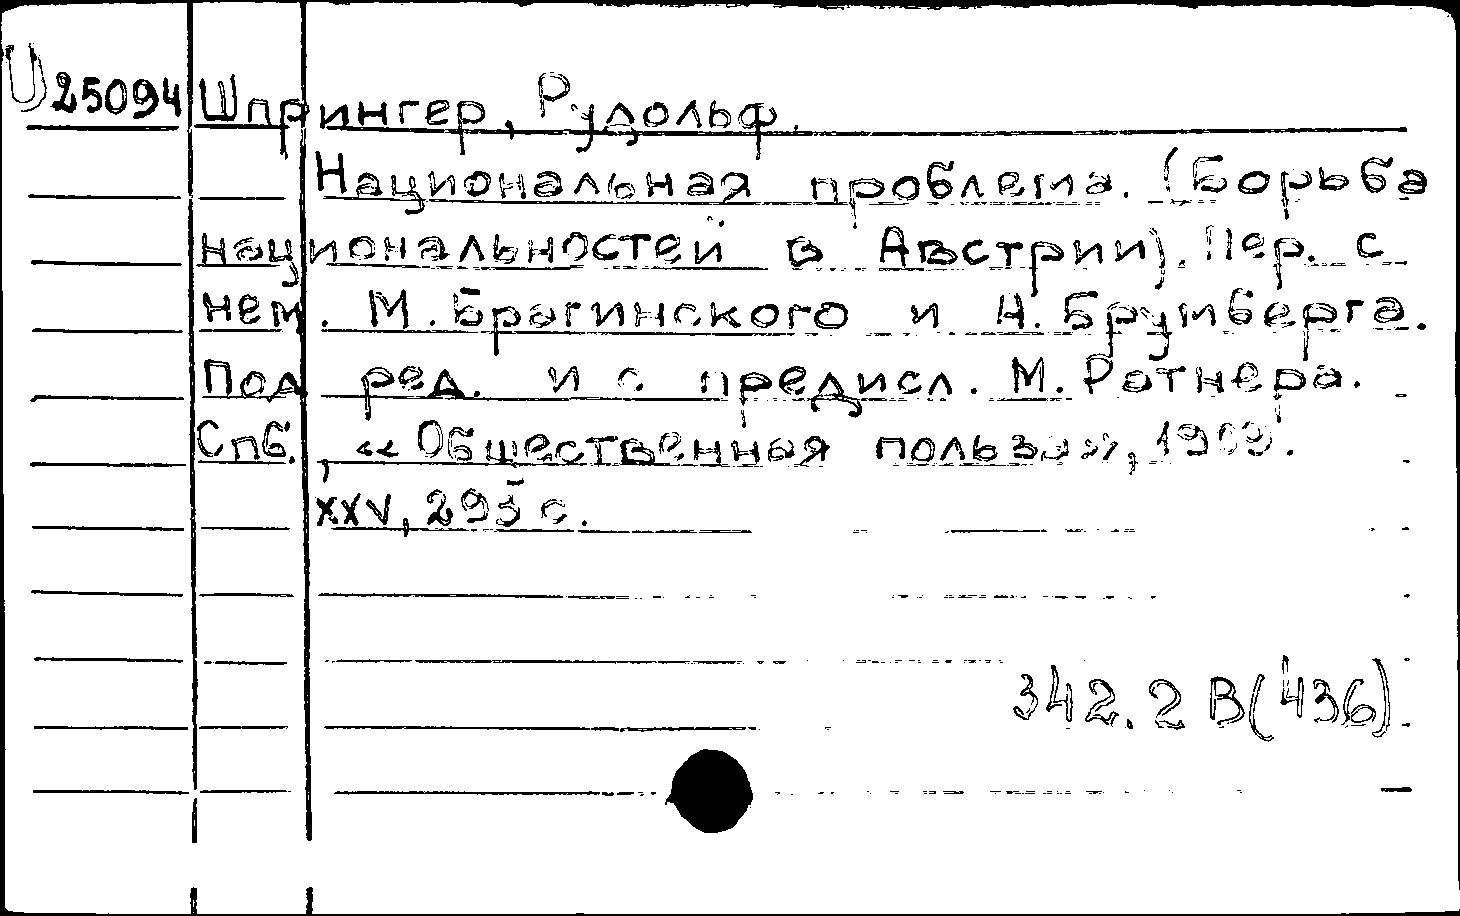 U25094 Шпрингер, Рудольф.
Национальная проблема. (Борьба
национальностей в Австрии). Пер. с
нем. М. Брагинского и А. Брумберга.
Под ред. и с предисл. М. Ратнера.
Спб., «Общественная польза», 1909.
XXV, 295 с.
342.2 В(436)